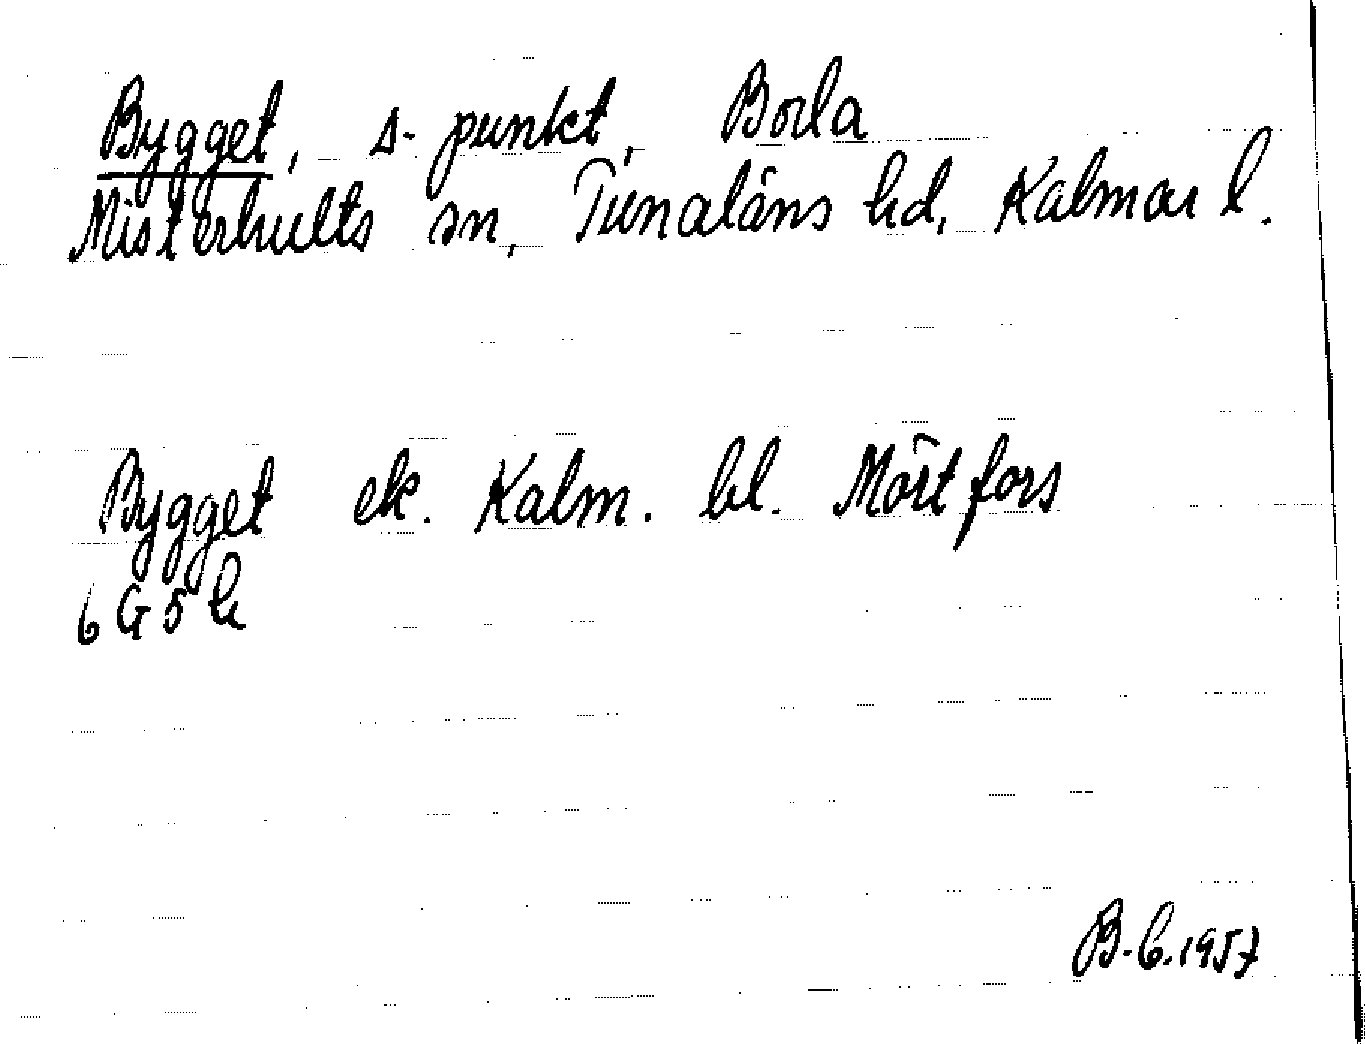 Bygget, s-punkt, Borla
Misterhults sn, Tunaläns hd, Kalmar l.
Bygget ek. Kalm. bl. Mörtfors
6 G 5 h
B-b.1957